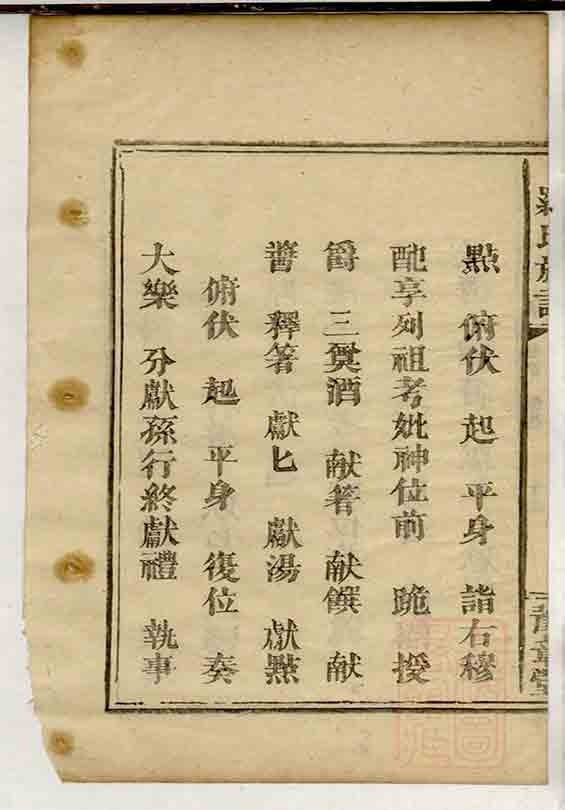 羅氏族譜
豫章堂
點 俯伏 起 平身 詣右穆
配享列祖考妣神位前 跪 授
爵 三奠酒 献箸 献饌 献
醬 釋箸 獻匕 獻湯 献點
俯伏 起 平身 復位 奏
大樂 分獻孫行終獻禮 執事